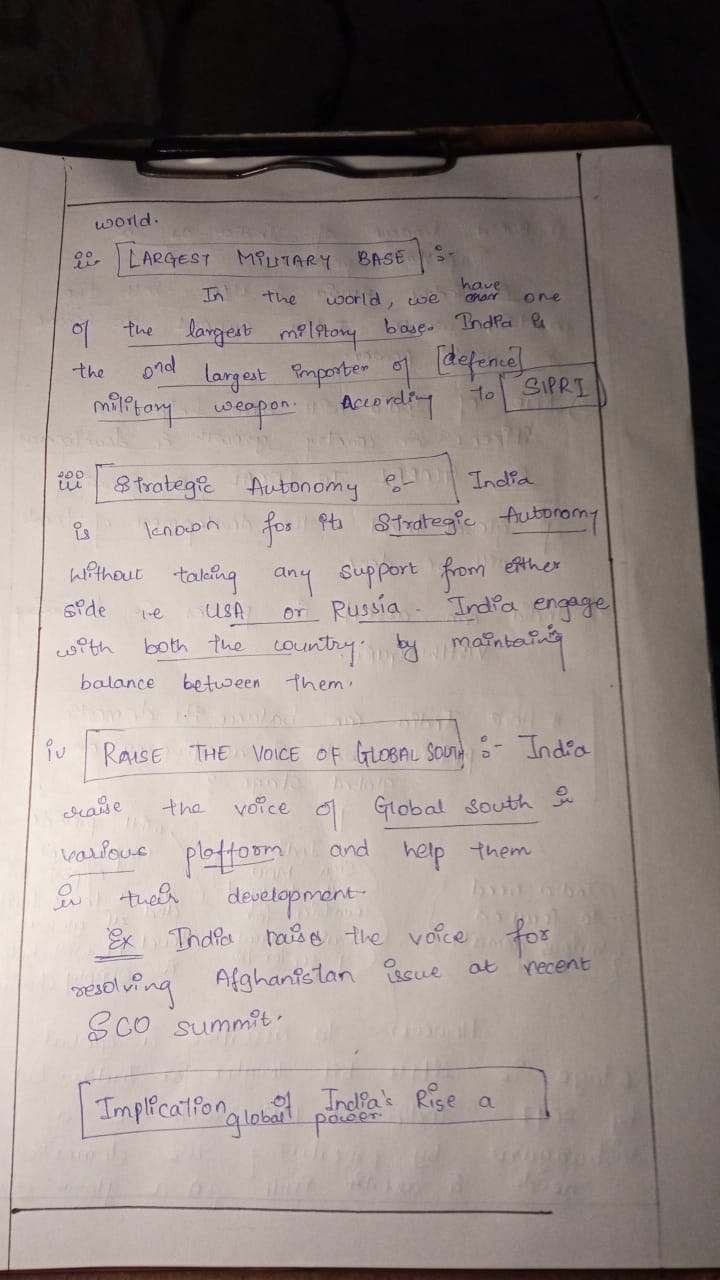 world.
ii [LARGEST MILITARY BASE] :-
In the world, we have one
of the largest military base. India is
the 2nd largest importer of [defence]
military weapon. According to [SIPRI]
iii [Strategic Autonomy :-] India
is known for its Strategic Autonomy
without taking any support from either
side i.e USA or Russia. India engage
with both the country. by maintaing
balance between them.
iv [RAISE THE VOICE OF GLOBAL SOUTH] :- India
raise the voice of Global South in
various platform and help them
in their development.
Ex India raised the voice for
resolving Afghanistan issue at recent
SCO summit.
[Implication of India's Rise a
global power.]